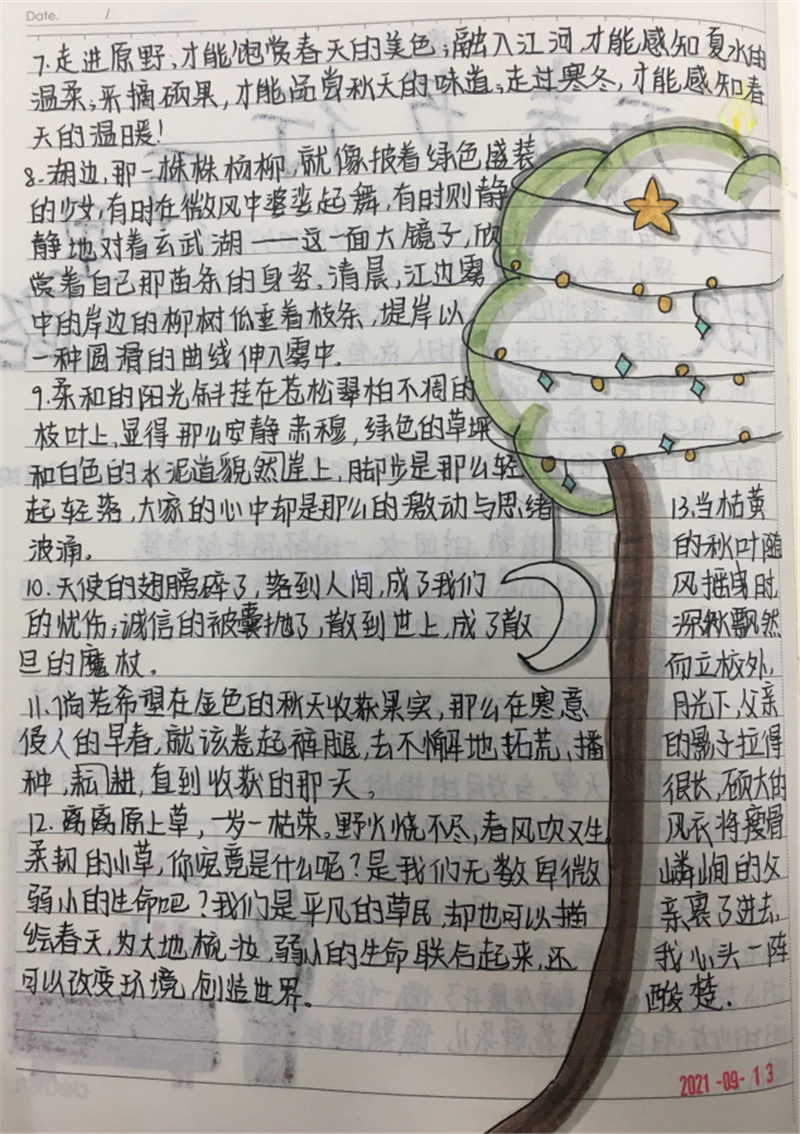 Date. /
7.走进原野,才能饱赏春天的美色;融入江河,才能感知夏水的
温柔;采摘硕果,才能品尝秋天的味道;走过寒冬,才能感知春
天的温暖!
8.湖边,那一株株杨柳,就像披着绿色盛装
的少女,有时在微风中婆娑起舞,有时则静
静地对着玄武湖——这一面大镜子,欣
赏着自己那苗条的身姿。清晨,江边雾
中的岸边的柳树低垂着枝条,堤岸以
一种圆滑的曲线伸入雾中。
9.柔和的阳光斜挂在苍松翠柏不凋的
枝叶上,显得那么安静肃穆,绿色的草坪
和白色的水泥道貌然岸上,脚步是那么轻
起轻落,大家的心中却是那么的激动与思绪
波涌。
10.天使的翅膀碎了,落到人间,成了我们
的忧伤;诚信的被囊抛了,散到世上,成了散
旦的魔杖。
11.倘若希望在金色的秋天收获果实,那么在寒意
侵人的早春,就该卷起裤腿,去不懈地拓荒、播
种,耘耕,直到收获的那天。
12.离离原上草,一岁一枯荣。野火烧不尽,春风吹又生
柔韧的小草,你究竟是什么呢?是我们无数卑微
弱小的生命吧?我们是平凡的草民,却也可以描
绘春天,为大地梳妆,弱小的生命联合起来,还
可以改变环境,创造世界。
13.当枯黄
的秋叶随
风摇曳时
深秋飘然
而立校外,
月光下,父亲
的影子拉得
很长,硕大的
风衣将瘦骨
嶙峋的父
亲裹了进去,
我心头一阵
酸楚.
2021-09-13